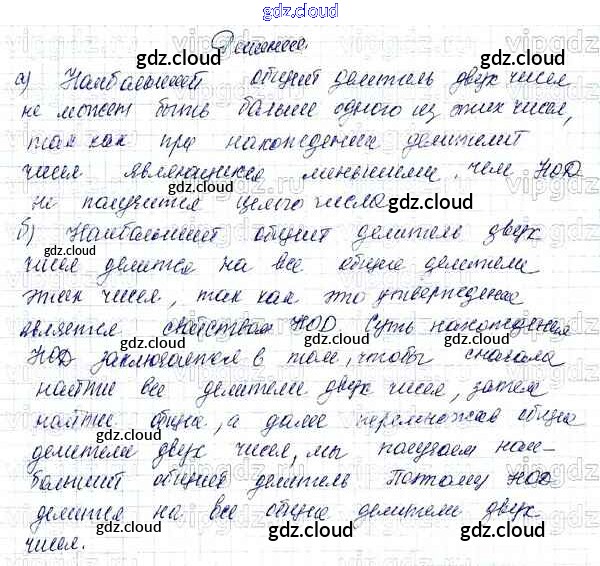 gdz.cloud
Решение.
а) Наибольший общий делитель двух чисел
не может быть больше одного из этих чисел,
так как при нахождении делителей
чисел являющихся меньшими, чем НОД
не получится целого числа
б) Наибольший общий делитель двух
чисел делится на все общие делители
этих чисел, так как это утверждение
является свойством НОД. Суть нахождения
НОД заключается в том, чтобы сначала
найти все делители двух чисел, затем
найти общие, а далее перемножав общие
делители двух чисел, мы получаем наи-
больший общий делитель Поэтому НОД
делится на все общие делители двух
чисел.
gdz.cloud